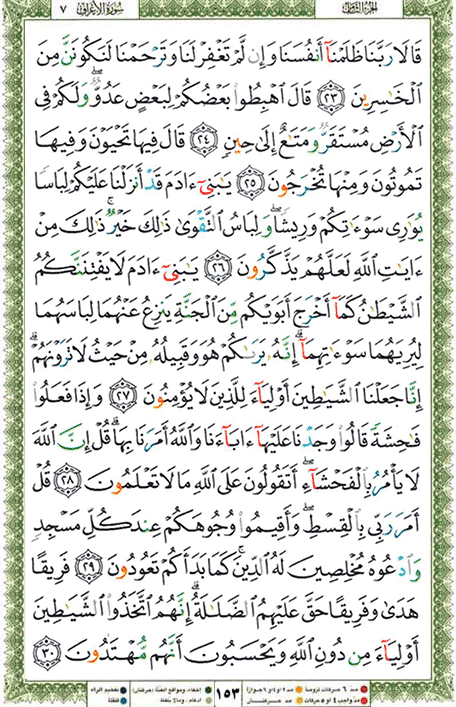 سورة الأعراف ٧ الجزء الثامن
قَالَا رَبَّنَا ظَلَمْنَآ أَنفُسَنَا وَإِن لَّمْ تَغْفِرْ لَنَا وَتَرْحَمْنَا لَنَكُونَنَّ مِنَ
ٱلْخَٰسِرِينَ ٢٣ قَالَ ٱهْبِطُوا۟ بَعْضُكُمْ لِبَعْضٍ عَدُوٌّ ۖ وَلَكُمْ فِى
ٱلْأَرْضِ مُسْتَقَرٌّ وَمَتَٰعٌ إِلَىٰ حِينٍ ٢٤ قَالَ فِيهَا تَحْيَوْنَ وَفِيهَا
تَمُوتُونَ وَمِنْهَا تُخْرَجُونَ ٢٥ يَٰبَنِىٓ ءَادَمَ قَدْ أَنزَلْنَا عَلَيْكُمْ لِبَاسًا
يُوَٰرِى سَوْءَٰتِكُمْ وَرِيشًا ۖ وَلِبَاسُ ٱلتَّقْوَىٰ ذَٰلِكَ خَيْرٌ ۚ ذَٰلِكَ مِنْ
ءَايَٰتِ ٱللَّهِ لَعَلَّهُمْ يَذَّكَّرُونَ ٢٦ يَٰبَنِىٓ ءَادَمَ لَا يَفْتِنَنَّكُمُ
ٱلشَّيْطَٰنُ كَمَآ أَخْرَجَ أَبَوَيْكُم مِّنَ ٱلْجَنَّةِ يَنزِعُ عَنْهُمَا لِبَاسَهُمَا
لِيُرِيَهُمَا سَوْءَٰتِهِمَآ ۗ إِنَّهُۥ يَرَىٰكُمْ هُوَ وَقَبِيلُهُۥ مِنْ حَيْثُ لَا تَرَوْنَهُمْ ۗ
إِنَّا جَعَلْنَا ٱلشَّيَٰطِينَ أَوْلِيَآءَ لِلَّذِينَ لَا يُؤْمِنُونَ ٢٧ وَإِذَا فَعَلُوا۟
فَٰحِشَةً قَالُوا۟ وَجَدْنَا عَلَيْهَآ ءَابَآءَنَا وَٱللَّهُ أَمَرَنَا بِهَا ۗ قُلْ إِنَّ ٱللَّهَ
لَا يَأْمُرُ بِٱلْفَحْشَآءِ ۖ أَتَقُولُونَ عَلَى ٱللَّهِ مَا لَا تَعْلَمُونَ ٢٨ قُلْ
أَمَرَ رَبِّى بِٱلْقِسْطِ ۖ وَأَقِيمُوا۟ وُجُوهَكُمْ عِندَ كُلِّ مَسْجِدٍ
وَٱدْعُوهُ مُخْلِصِينَ لَهُ ٱلدِّينَ ۚ كَمَا بَدَأَكُمْ تَعُودُونَ ٢٩ فَرِيقًا
هَدَىٰ وَفَرِيقًا حَقَّ عَلَيْهِمُ ٱلضَّلَٰلَةُ ۗ إِنَّهُمُ ٱتَّخَذُوا۟ ٱلشَّيَٰطِينَ
أَوْلِيَآءَ مِن دُونِ ٱللَّهِ وَيَحْسَبُونَ أَنَّهُم مُّهْتَدُونَ ٣٠
١٥٣